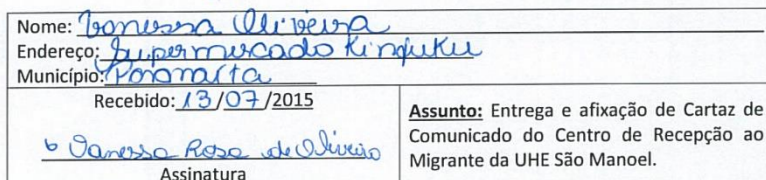 Nome: Vanessa Oliveira
Endereço: Supermercado Kinfuku
Município: Paranaíta
Recebido: 13/07/2015
Vanessa Rosa de Oliveira
Assinatura
Assunto: Entrega e afixação de Cartaz de
Comunicado do Centro de Recepção ao
Migrante da UHE São Manoel.